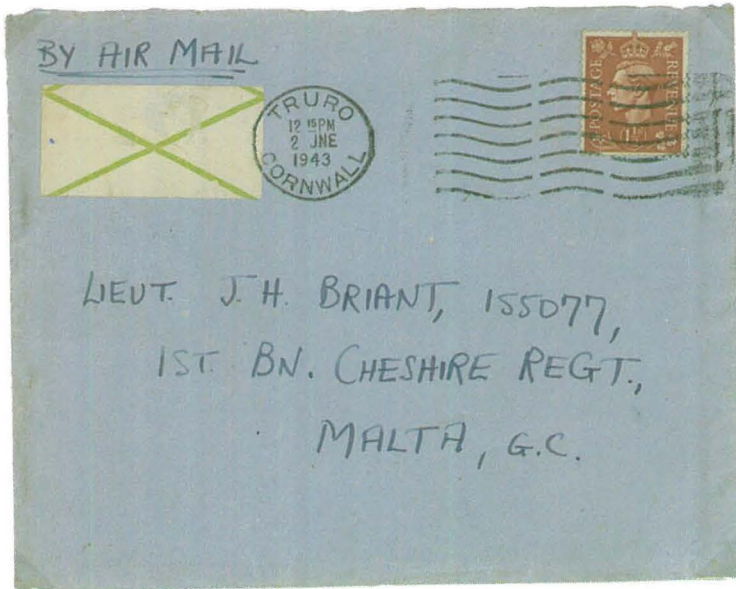 BY AIR MAIL
TRURO
12 15 PM
2 JNE
1943
CORNWALL
POSTAGE REVENUE
LIEUT. J. H. BRIANT, 155077,
1ST. BN. CHESHIRE REGT.,
MALTA, G.C.